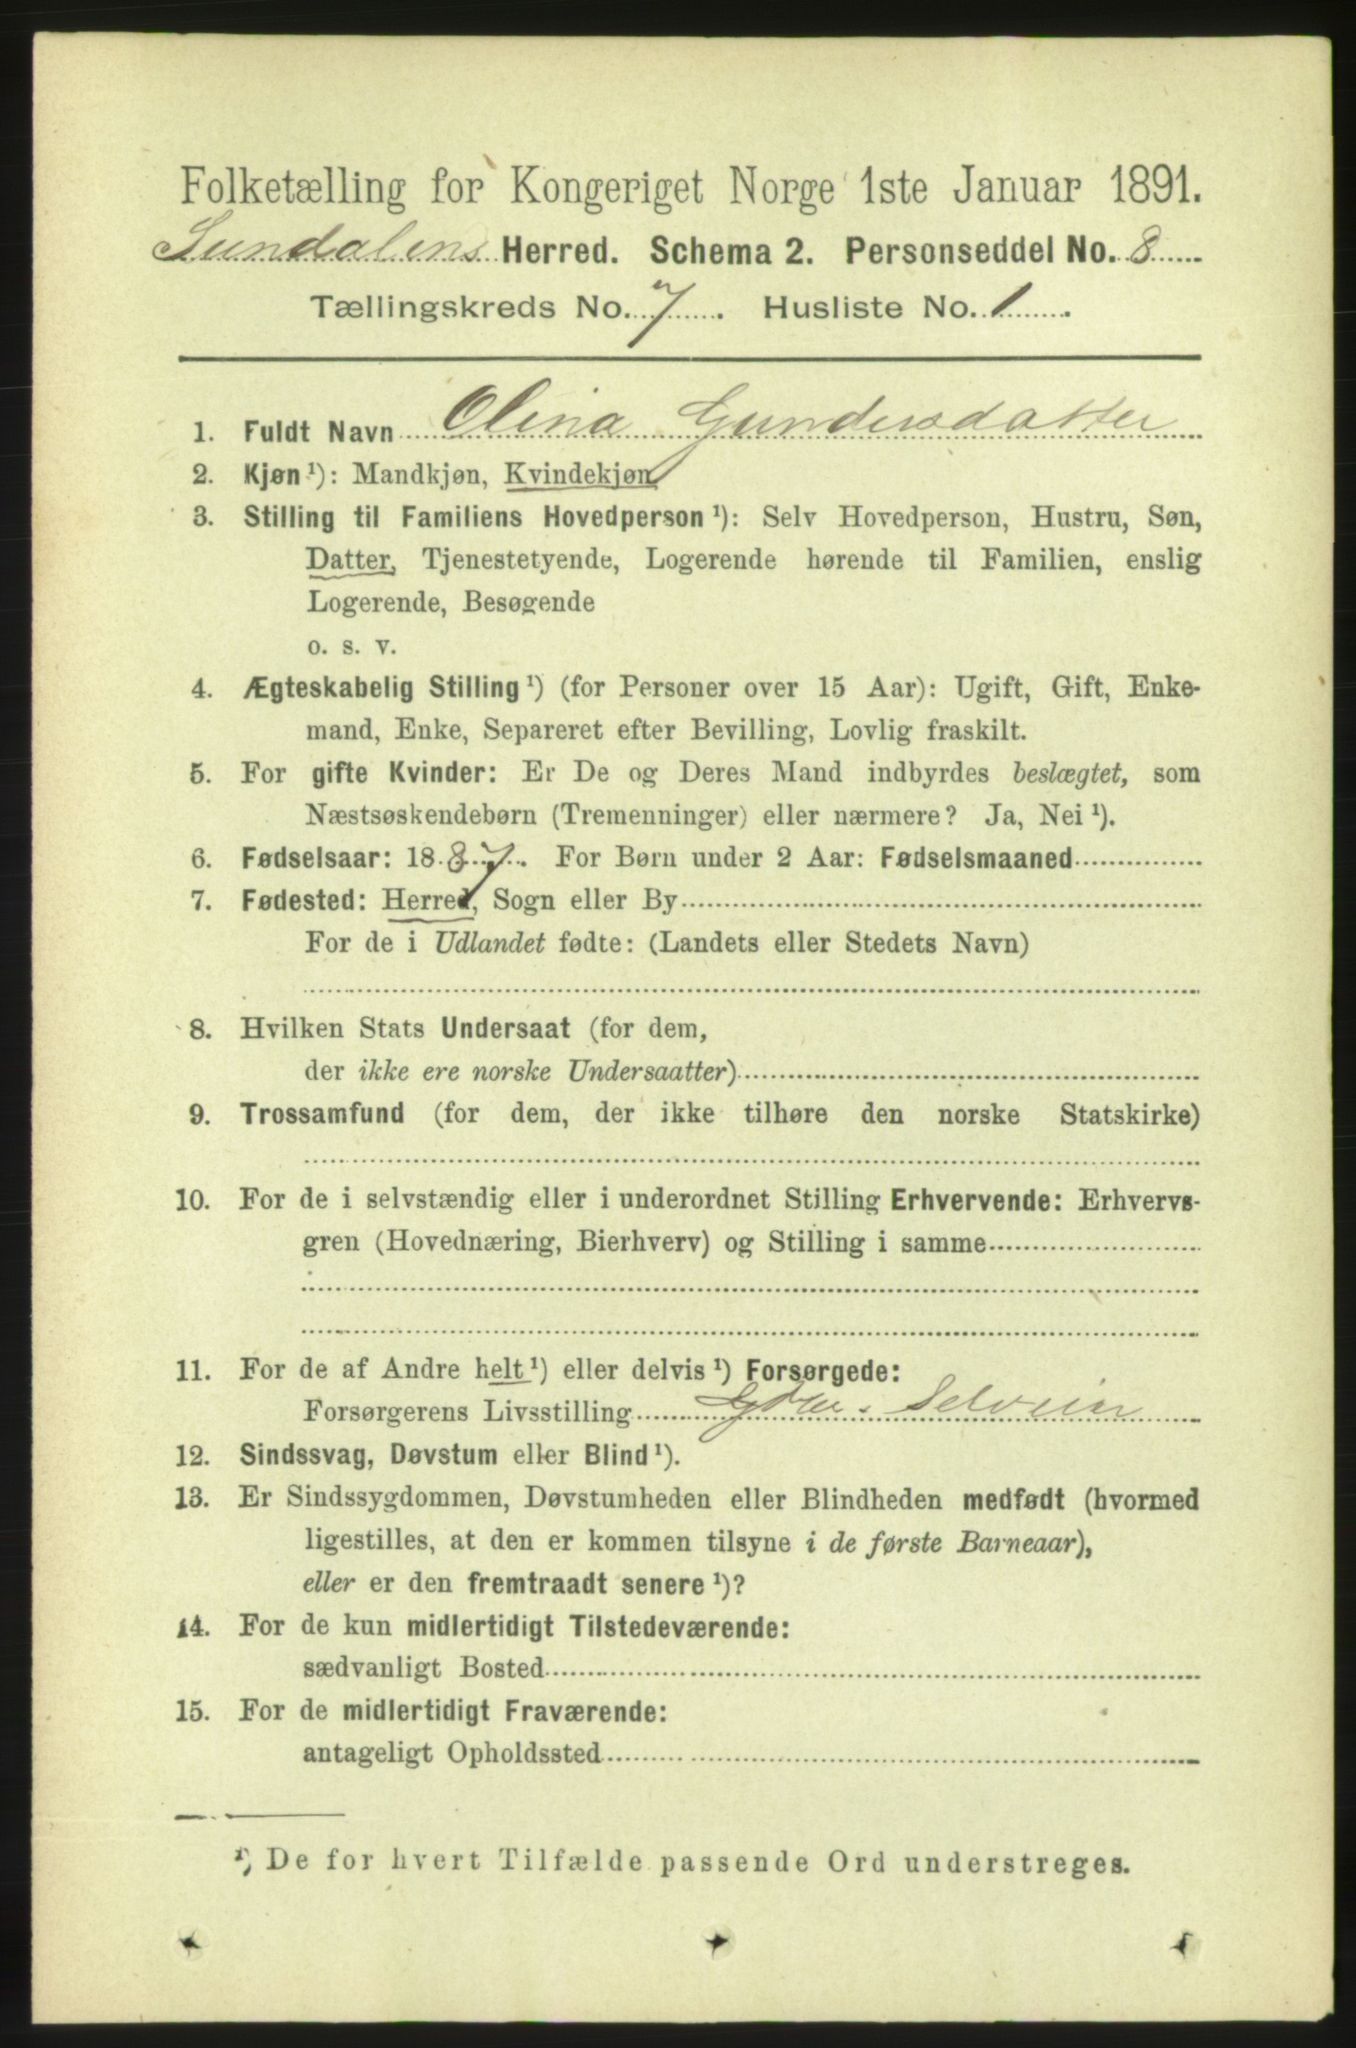 Folketælling for Kongeriget Norge 1ste Januar 1891.
Sundalens Herred. Schema 2. Personseddel No. 8
Tællingskreds No. 7. Husliste No. 1.
1. Fuldt Navn Olina Gundersdatter
2. Kjøn ¹): Mandkjøn, Kvindekjøn
3. Stilling til Familiens Hovedperson ¹): Selv Hovedperson, Hustru, Søn,
Datter, Tjenestetyende, Logerende hørende til Familien, enslig
Logerende, Besøgende
o. s. v.
4. Ægteskabelig Stilling ¹) (for Personer over 15 Aar): Ugift, Gift, Enke-
mand, Enke, Separeret efter Bevilling, Lovlig fraskilt.
5. For gifte Kvinder: Er De og Deres Mand indbyrdes beslægtet, som
Næstsøskendebørn (Tremenninger) eller nærmere? Ja, Nei ¹).
6. Fødselsaar: 1887. For Børn under 2 Aar: Fødselsmaaned
7. Fødested: Herred, Sogn eller By
For de i Udlandet fødte: (Landets eller Stedets Navn)
8. Hvilken Stats Undersaat (for dem,
der ikke ere norske Undersaatter)
9. Trossamfund (for dem, der ikke tilhøre den norske Statskirke)
10. For de i selvstændig eller i underordnet Stilling Erhvervende: Erhvervs-
gren (Hovednæring, Bierhverv) og Stilling i samme
11. For de af Andre helt ¹) eller delvis ¹) Forsørgede:
Forsørgerens Livsstilling Gdbr. Selveier
12. Sindssvag, Døvstum eller Blind ¹).
13. Er Sindssygdommen, Døvstumheden eller Blindheden medfødt (hvormed
ligestilles, at den er kommen tilsyne i de første Barneaar),
eller er den fremtraadt senere ¹)?
14. For de kun midlertidigt Tilstedeværende:
sædvanligt Bosted
15. For de midlertidigt Fraværende:
antageligt Opholdssted
¹) De for hvert Tilfælde passende Ord understreges.